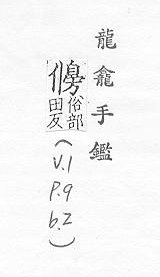 龍龕手鑑
俗部
田反
(V.1
P.9
b.2)